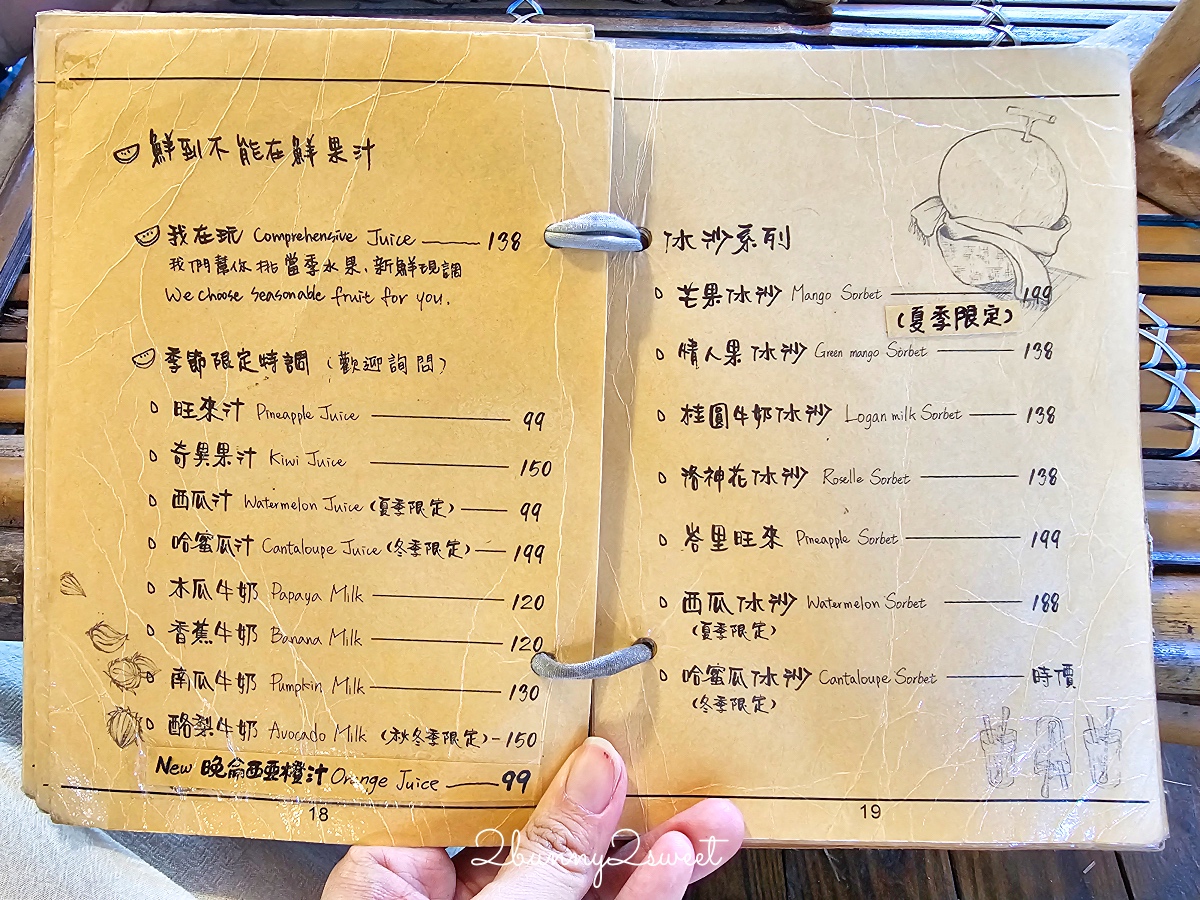 鮮到不能在鮮果汁
我在玩 Comprehensive Juice 138
我們幫你挑當季水果、新鮮現調
We choose seasonable fruit for you.
季節限定特調 (歡迎詢問)
旺來汁 Pineapple Juice 99
奇異果汁 Kiwi Juice 150
西瓜汁 Watermelon Juice (夏季限定) 99
哈蜜瓜汁 Cantaloupe Juice (冬季限定) 199
木瓜牛奶 Papaya Milk 120
香蕉牛奶 Banana Milk 120
南瓜牛奶 Pumpkin Milk 130
酪梨牛奶 Avocado Milk (秋冬季限定) 150
New 晚崙西亞橙汁 Orange Juice 99
18
冰沙系列
芒果冰沙 Mango Sorbet 199
(夏季限定)
情人果冰沙 Green mango Sorbet 138
桂圓牛奶冰沙 Logan milk Sorbet 138
洛神花冰沙 Roselle Sorbet 138
峇里旺來 Pineapple Sorbet 199
西瓜冰沙 Watermelon Sorbet 188
(夏季限定)
哈蜜瓜冰沙 Cantaloupe Sorbet 時價
(冬季限定)
19
2bunny2sweet